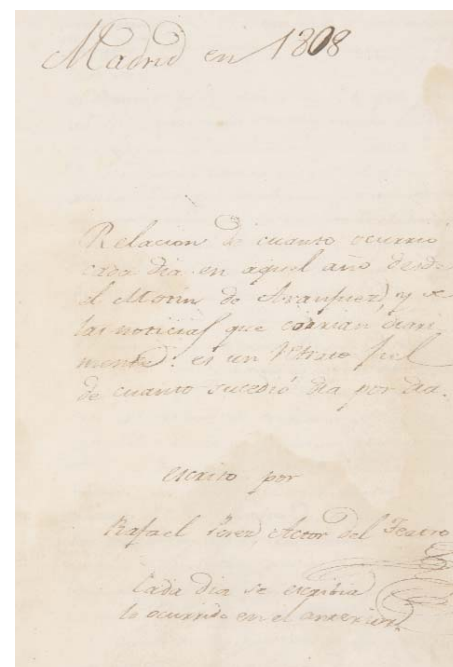 Madrid en 1808
Relacion de cuanto ocurrio
cada dia en aquel año desde
el Motin de Aranjuez, y de
las noticias que corrian diari
mente: es un retrato fiel
de cuanto sucedió dia por dia.
escrito por
Rafael Perez Actor del Teatro
Cada dia se escribia
lo ocurrido en el anterior.